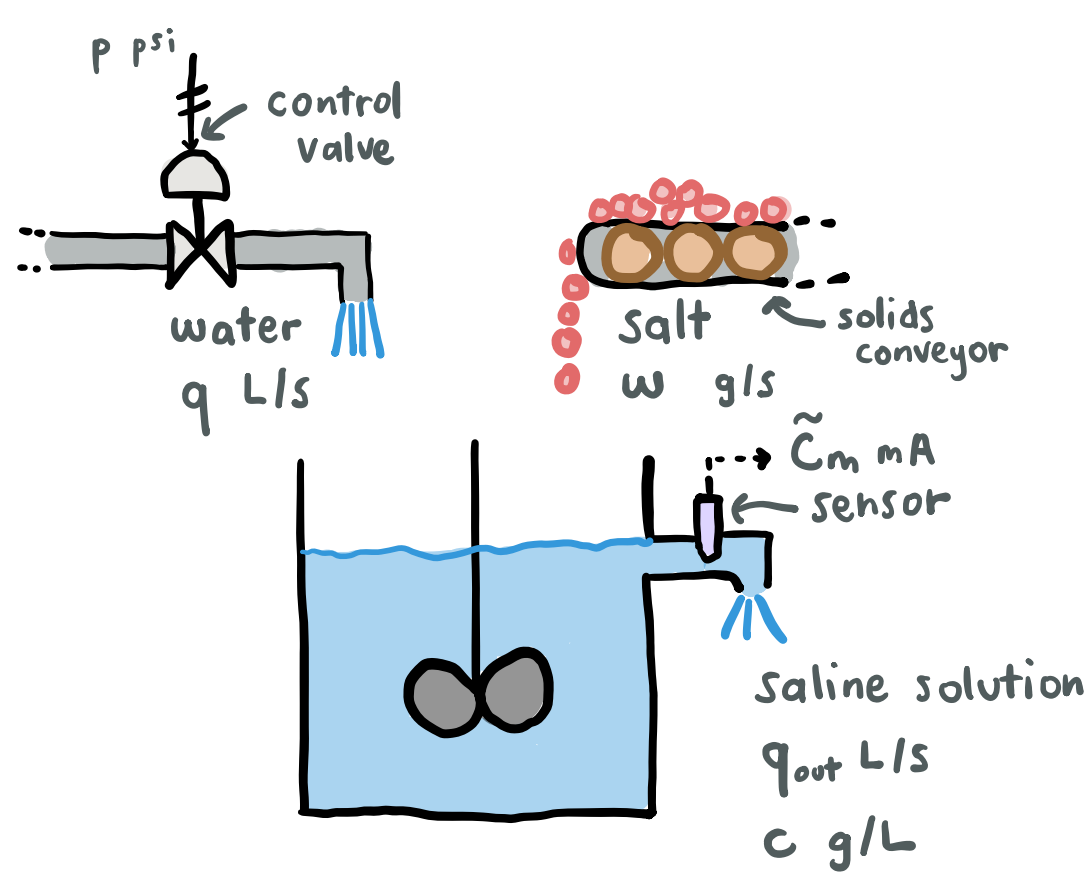 p psi
control
valve
water
q L/s
salt
w g/s
solids
conveyor
c̃m mA
sensor
saline solution
qout L/s
c g/L